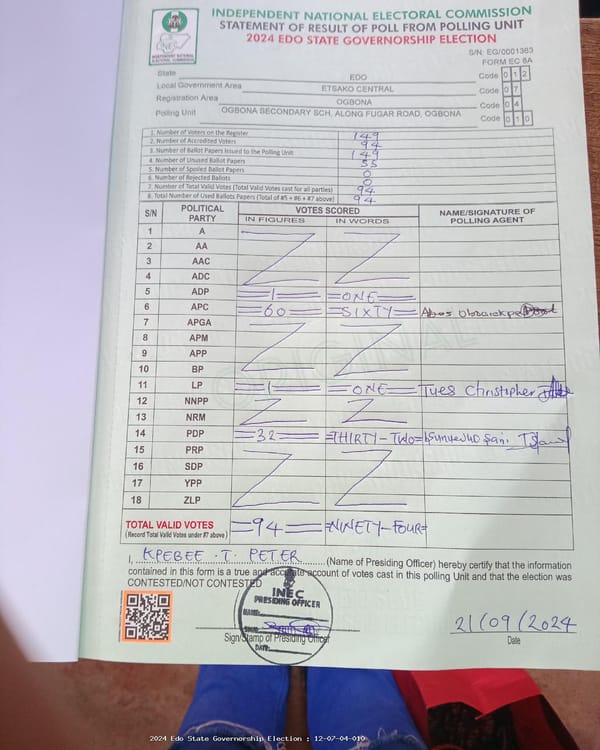 INDEPENDENT NATIONAL ELECTORAL COMMISSION
STATEMENT OF RESULT OF POLL FROM POLLING UNIT
2024 EDO STATE GOVERNORSHIP ELECTION
S/N: EG/0001383
FORM EC 8A
State EDO Code 0 1 2
Local Government Area ETSAKO CENTRAL Code 0 7
Registration Area OGBONA Code 0 4
Polling Unit OGBONA SECONDARY SCH, ALONG FUGAR ROAD, OGBONA Code 0 1 0
1. Number of Voters on the Register 149
2. Number of Accredited Voters 94
3. Number of Ballot Papers Issued to the Polling Unit 149
4. Number of Unused Ballot Papers 55
5. Number of Spoiled Ballot Papers 0
6. Number of Rejected Ballots 0
7. Number of Total Valid Votes (Total Valid Votes cast for all parties) 94
8. Total Number of Used Ballots Papers (Total of #5 + #6 + #7 above) 94
S/N POLITICAL PARTY VOTES SCORED NAME/SIGNATURE OF POLLING AGENT
IN FIGURES IN WORDS
1 A
2 AA
3 AAC
4 ADC
5 ADP 1 ONE
6 APC 60 SIXTY
7 APGA
8 APM
9 APP
10 BP
11 LP 1 ONE Tyes Christopher
12 NNPP
13 NRM
14 PDP 32 THIRTY-TWO Sani
15 PRP
16 SDP
17 YPP
18 ZLP
TOTAL VALID VOTES 94 NINETY-FOUR
(Record Total Valid Votes under #7 above)
I, KPEBEE .T. PETER (Name of Presiding Officer) hereby certify that the information
contained in this form is a true and accurate account of votes cast in this polling Unit and that the election was
CONTESTED/NOT CONTESTED
INEC
PRESIDING OFFICER
NAME:
SIGN:
DATE:
Sign/Stamp of Presiding Officer
21/09/2024
Date
2024 Edo State Governorship Election : 12-07-04-010